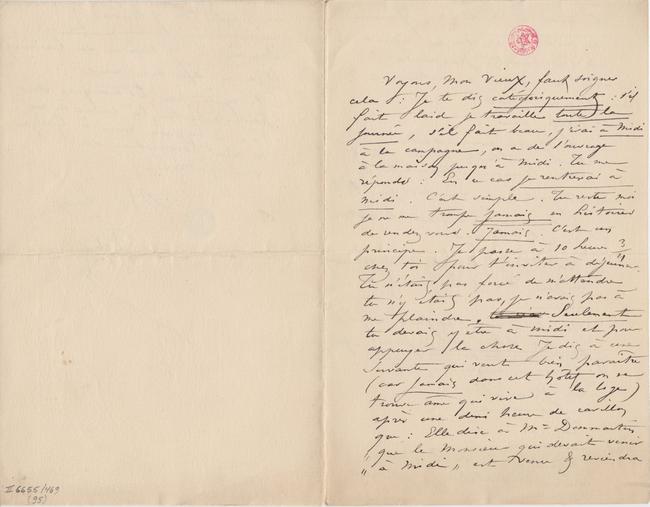 Voyons, mon vieux, faut soigner
cela : Je te dis catégoriquement : s'il
fait laid je travaille toute la
journée, s'il fait beau, j'irai à midi
à la campagne, on a de l'ouvrage
à la maison jusqu'à midi. Tu me
réponds : En ce cas je rentrerai à
midi. C'est simple. Tu reste moi
je ne me trompe jamais en histoires
de rendez vous. Jamais. C'est un
principe. Je passe à 10 heures 3/4
chez toi pour t'inviter à déjeuner.
Tu n'étais pas forcé de m'attendre
tu n'y étais pas, je n'avais pas à
me plaindre. Seulement
tu devais y être à midi et pour
appuyer la chose Je dis à une
suivante qui veut bien paraître
(car jamais dans cet hôtel on ne
trouve âme qui vive à la loge)
après une demi heure de carillon
que : Elle dise à Mr Dommartin
que le Monsieur qui devait venir
"à Midi" est venu & reviendra
II 6655/469
(95)